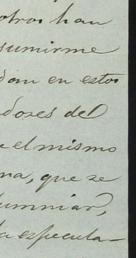 otros han
sumirme
dan en estos
dores del
el mismo
na, que se
lumniar,
la especula-